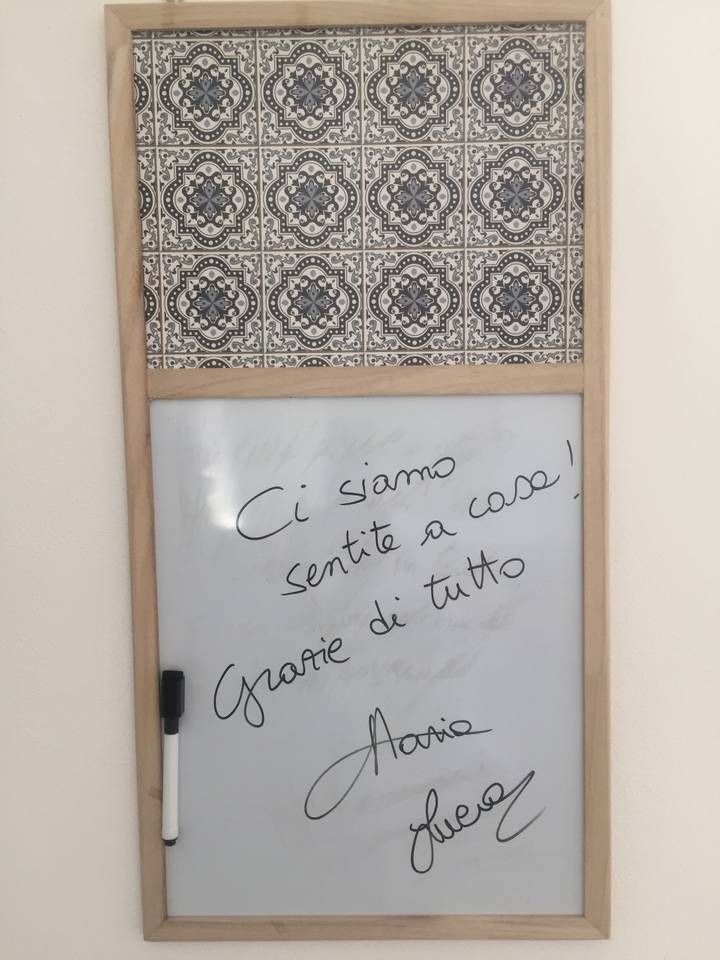 Ci siamo
sentite a casa!
Grazie di tutto
Maria